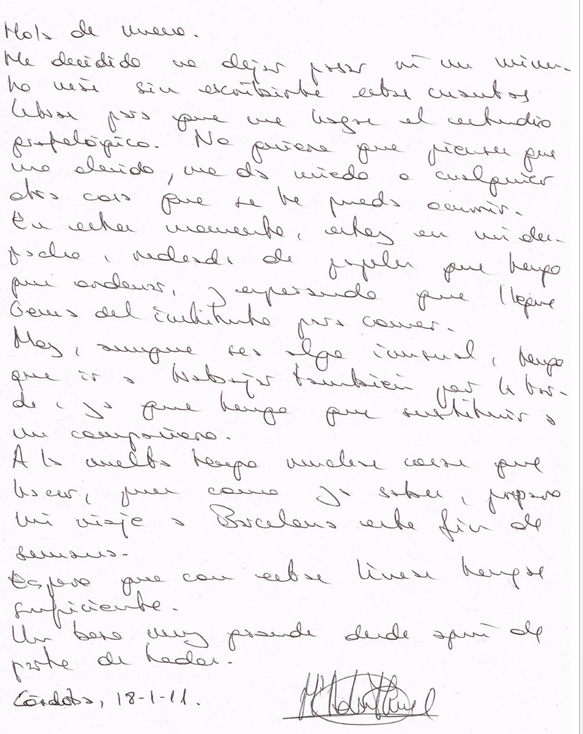 Hola de nuevo.
He decidido no dejar pasar ni un minu-
to más sin escribirte estas cuantas
letras para que me hagas el estudio
grafológico. No quiero que pienses que
me olvido, me da miedo o cualquier
otra cosa que se te pueda ocurrir.
En estos momentos, estoy en mi des-
pacho, rodeada de papeles que tengo
que ordenar, y esperando que llegue
Gema del instituto para comer.
Hoy, aunque sea algo inusual, tengo
que ir a trabajar también por la tar-
de, ya que tengo que sustituir a
un compañero.
A la vuelta tengo muchas cosas que
hacer, pues como ya sabes, preparo
mi viaje a Barcelona este fin de
semana.
Espero que con estas líneas tengas
suficiente.
Un beso muy grande desde aquí de
parte de todos.
Córdoba, 18-1-11.